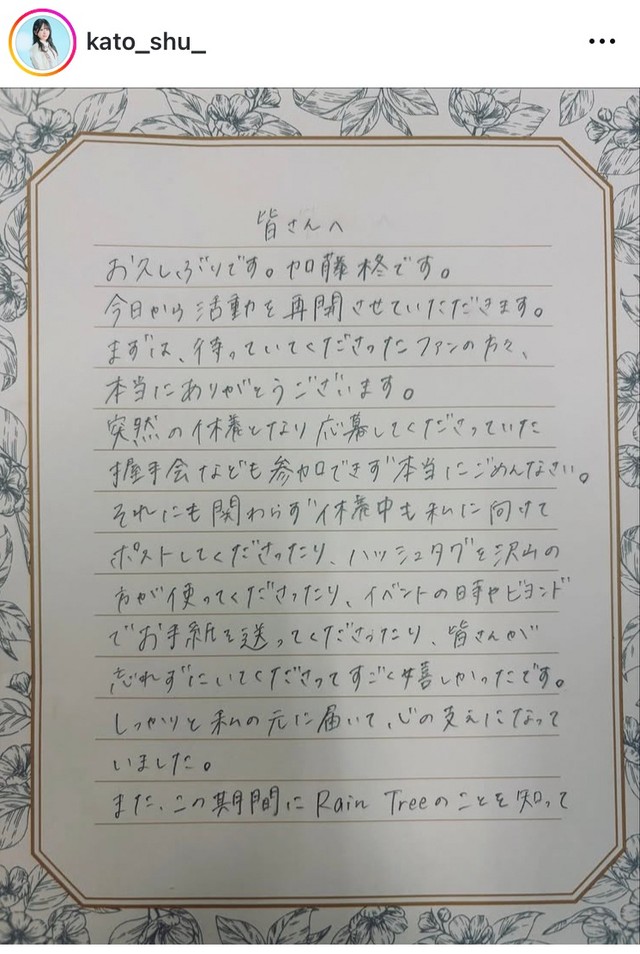 kato_shu_
皆さんへ
お久しぶりです。加藤柊です。
今日から活動を再開させていただきます。
まずは、待っていてくださったファンの方々、
本当にありがとうございます。
突然の休養となり応募してくださっていた
握手会なども参加できず本当にごめんなさい。
それにも関わらず休養中も私に向けて
ポストしてくださったり、ハッシュタグを沢山の
方が使ってくださったり、イベントの時やビヨンド
でお手紙を送ってくださったり、皆さんが
忘れずにいてくださってすごく嬉しかったです。
しっかりと私の元に届いて、心の支えになって
いました。
また、この期間にRain Treeのことを知って